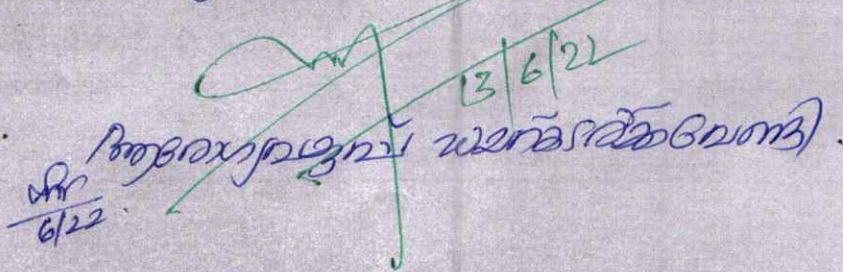 13/6/22
ആരോഗ്യവകുപ്പ് ഡയറക്ടർക്കുവേണ്ടി.
6/22